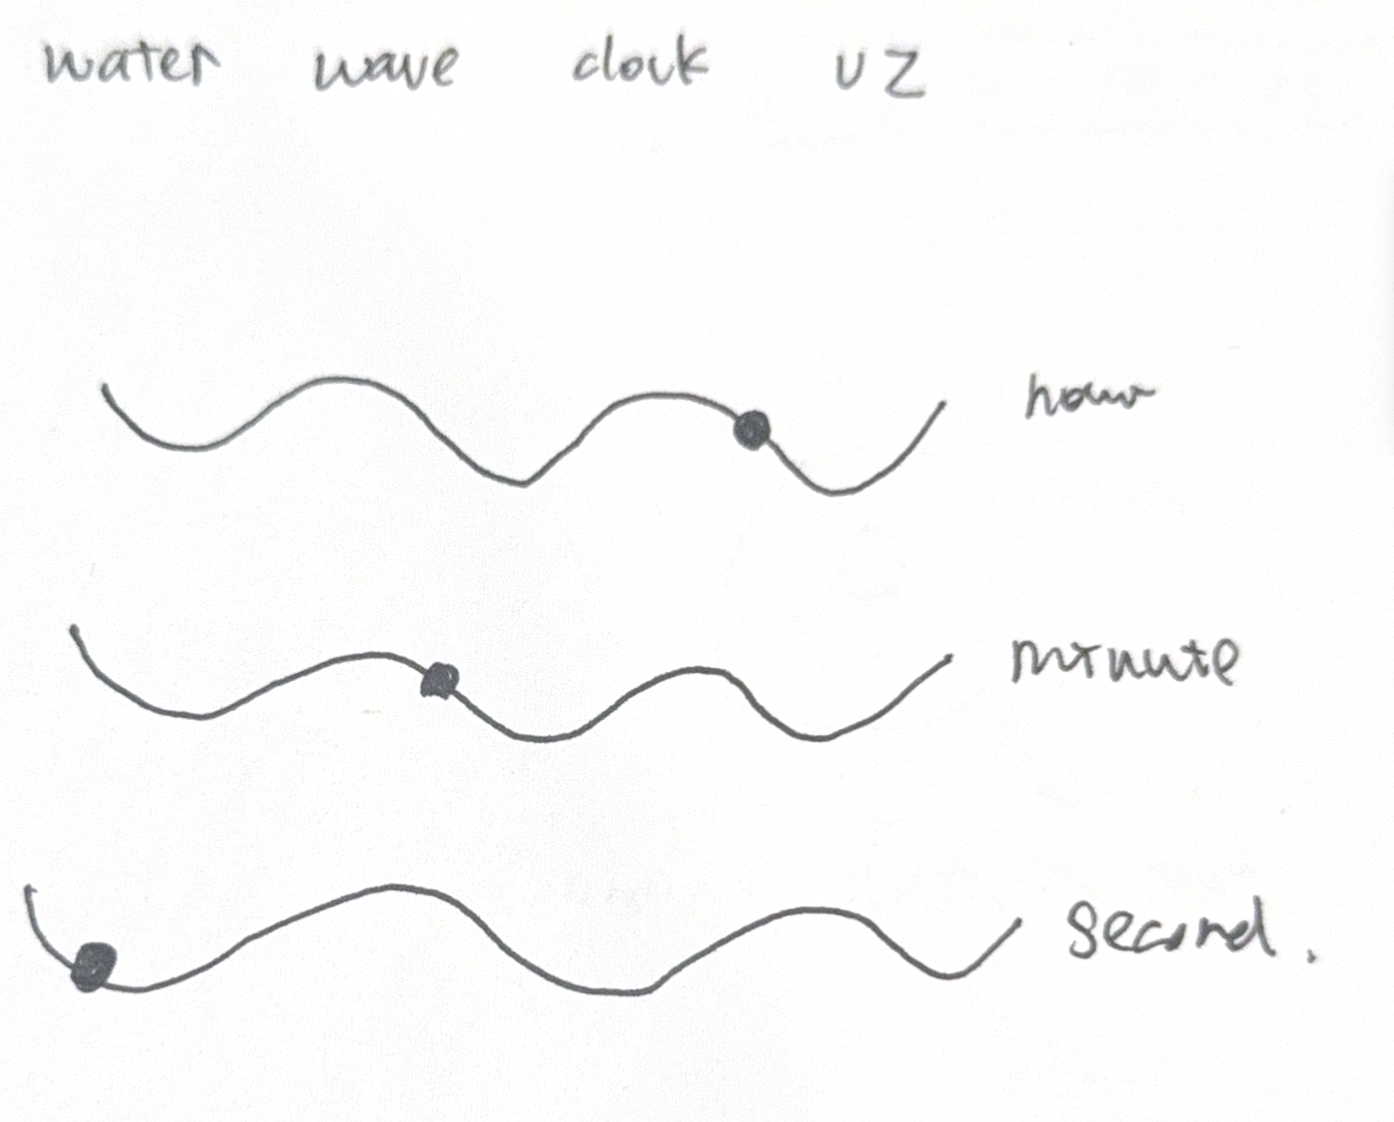 water wave clock UZ
hour
minute
second.